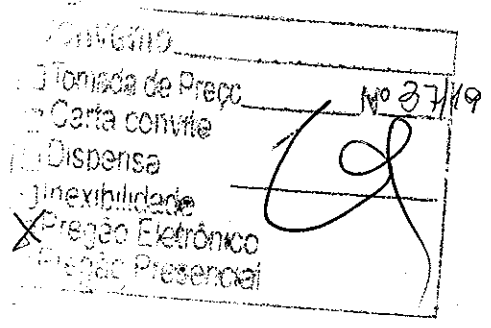 Convênio
Tomada de Preço Nº 37/19
Carta convite
Dispensa
Inexibilidade
X Pregão Eletrônico
Pregão Presencial